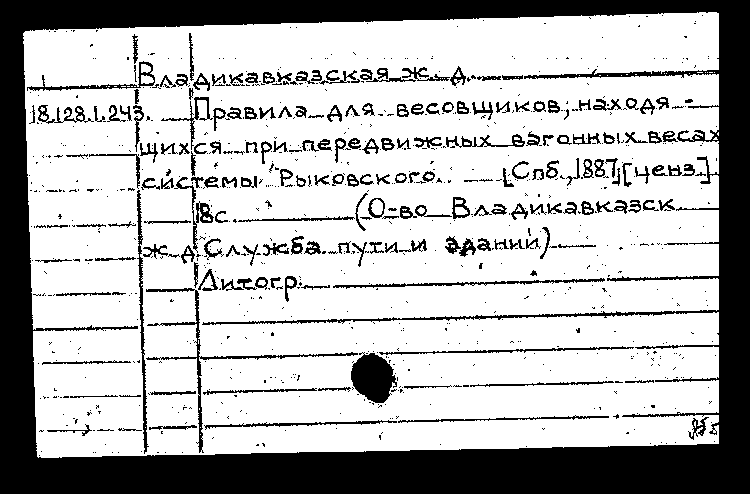 Владикавказская ж. д.
18.128.1.243. Правила для весовщиков, находя-
щихся при передвижных вагонных весах
системы Рыковского. [Спб., 1887] [ценз.]
18с. (О-во Владикавказск.
ж д Служба пути и зданий)
Литогр.